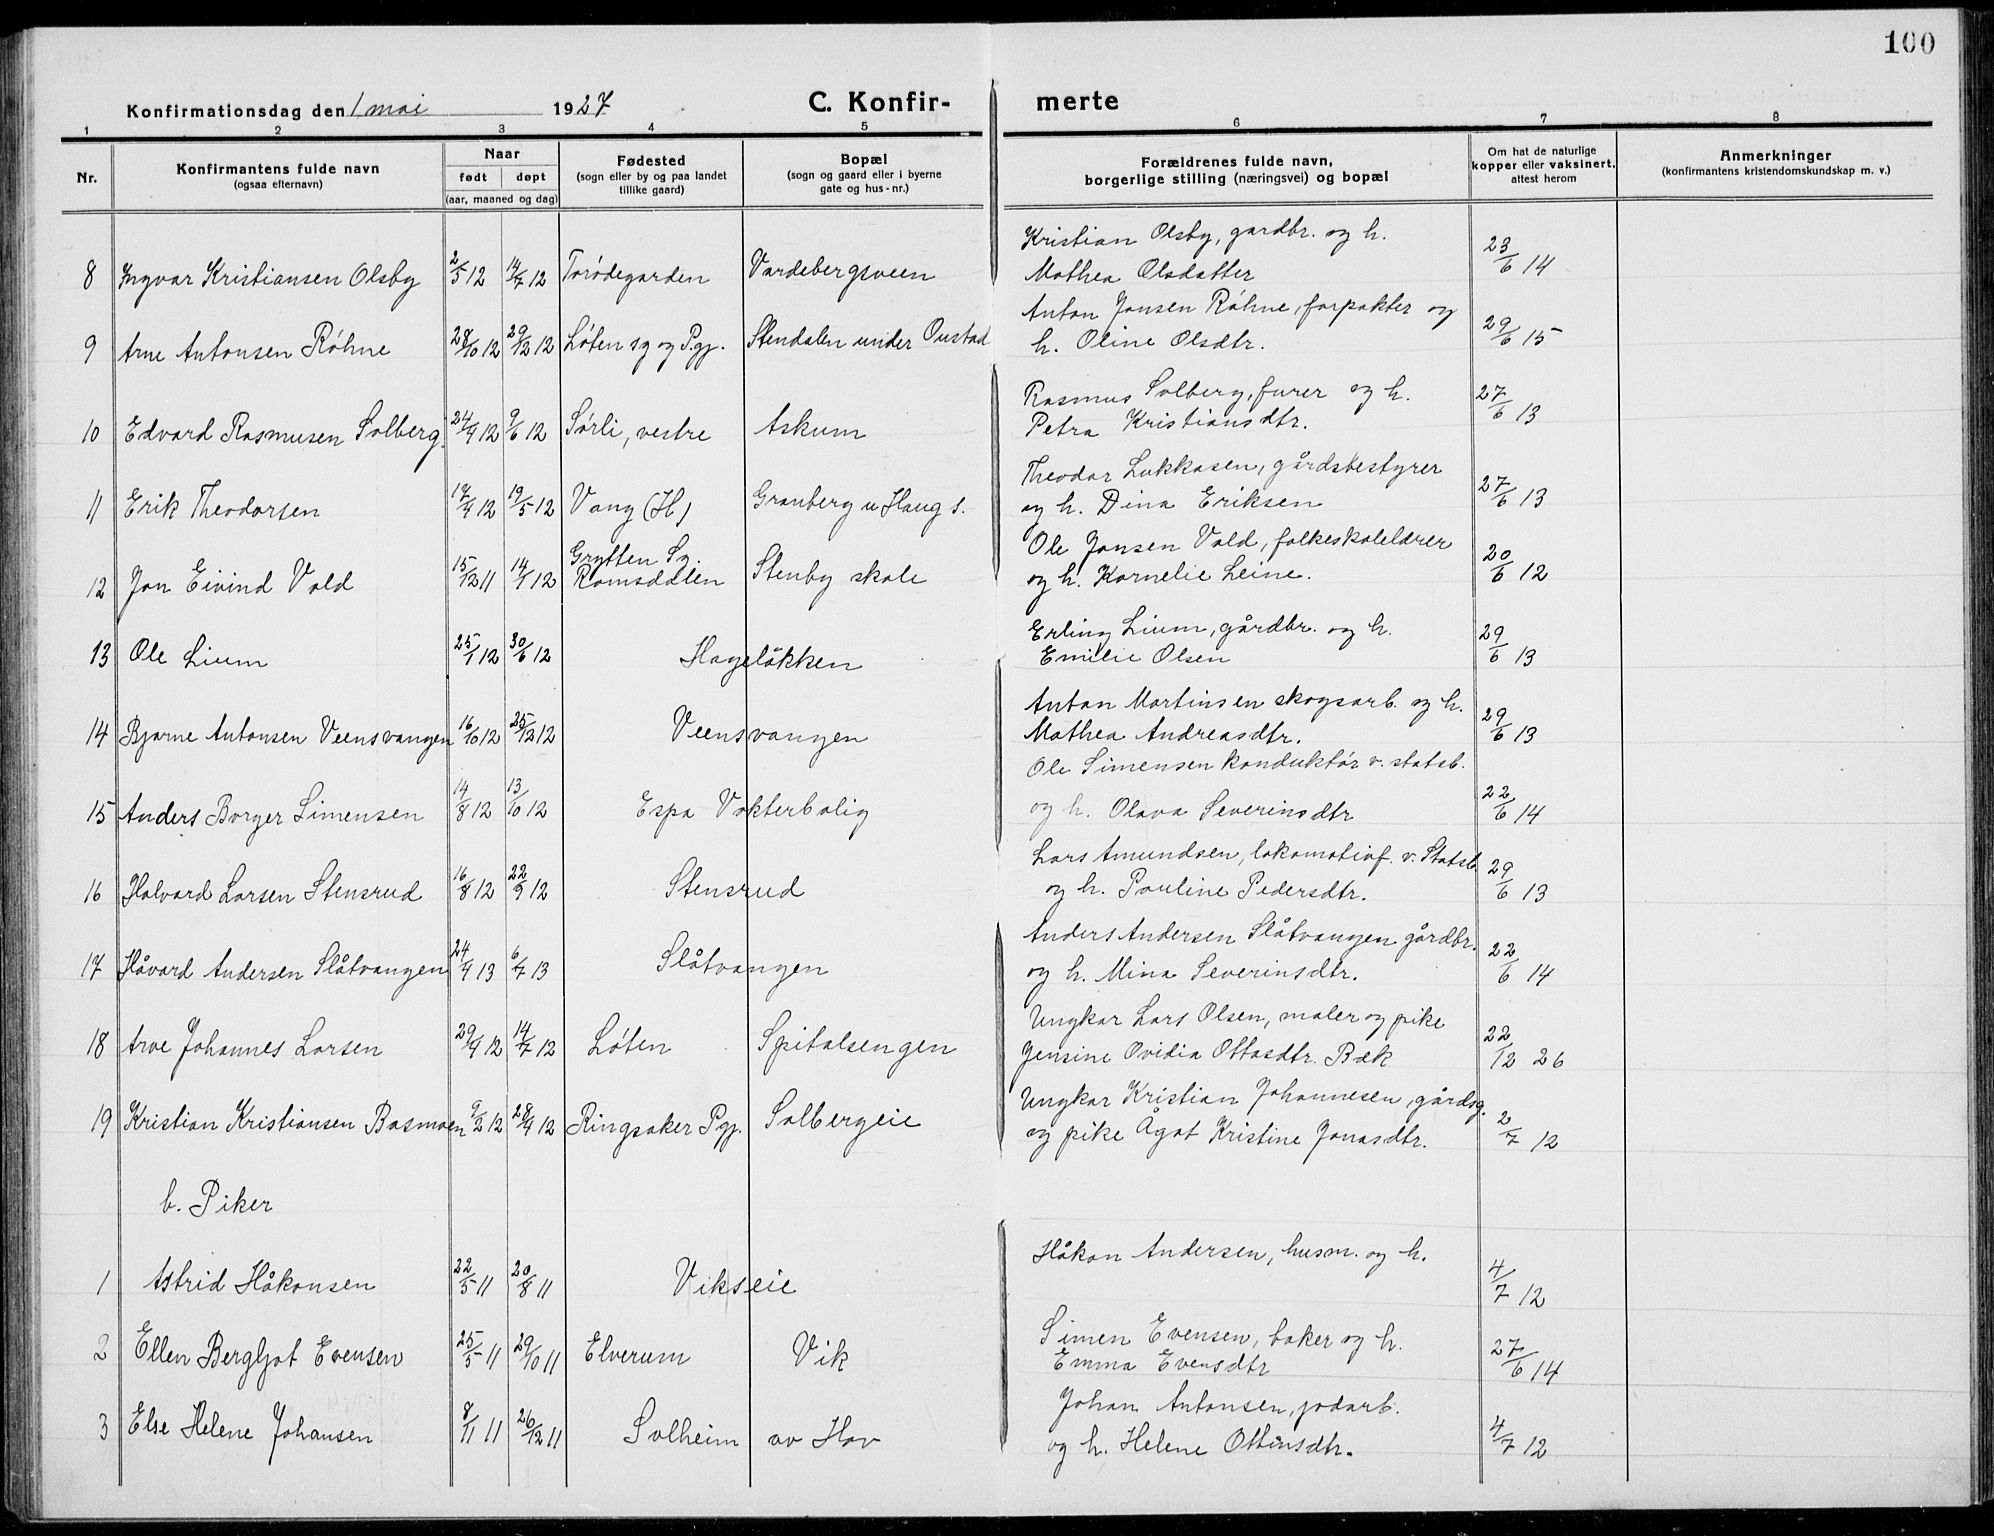 100
Konfirmationsdag den 1 mai 1927 C. Konfir- merte
1 2 3 4 5 6 7 8
Nr. Konfirmantens fulde navn (ogsaa efternavn) Naar født døpt (aar, maaned og dag) Fødested (sogn eller by og paa landet tillike gaard) Bopæl (sogn og gaard eller i byerne gate og hus-nr.) Forældrenes fulde navn, borgerlige stilling (næringsvei) og bopæl Om hat de naturlige kopper eller vaksinert, attest herom Anmerkninger (konfirmantens kristendomskundskap m. v.)
Kristian Olsby, gardbr. og h.
8 Ingvar Kristiansen Olsby 2/5 12 14/7 12 Torødegarden Vardebergsveen Mathea Olsdatter 23/6 14
Anton Jonsen Røhne, forpakter og
9 Arne Antonsen Røhne 28/10 12 29/12 12 Løten sg og Pgj. Stendalen under Oustad h. Oline Olsdtr. 29/6 15
Rasmus Solberg, furer og h.
10 Edvard Rasmusen Solberg 24/4 12 9/6 12 Sørli, vestre Askum Petra Kristiansdtr. 27/6 13
Theodor Lukkasen, gårdsbestyrer
11 Erik Theodorsen 17/4 12 19/5 12 Vang (H) Granberg u Haug s. og h. Dina Eriksen 27/6 13
Grytten Sg. Ole Jonsen Vold, folkeskolelærer
12 Jon Eivind Vold 15/12 11 14/1 12 Romsdalen Stenby skole og h. Kornelie Leine. 20/6 12
Erling Lium, gårdbr. og h.
13 Ole Lium 25/1 12 30/6 12 Hageløkken Emilie Olsen 29/6 13
Anton Martinsen skogsarb. og h.
14 Bjarne Antonsen Veensvangen 16/10 12 25/12 12 Veensvangen Mathea Andreasdtr. 29/6 13
Ole Simensen konduktør v. statsb.
15 Anders Borger Simensen 14/8 12 13/10 12 Espa Vokterbolig og h. Olava Severinsdtr 22/6 14
Lars Amundsen, lokomotivf. v. Statsb.
16 Halvard Larsen Stensrud 16/8 12 22/9 12 Stensrud og h. Pauline Pedersdtr. 29/6 13
Anders Andersen Slåtvangen gårdbr.
17 Håvard Andersen Slåtvangen 24/4 13 6/7 13 Slåtvangen og h. Mina Severinsdtr. 22/6 14
Ungkar Lars Olsen, maler og pike
18 Arve Johannes Larsen 29/4 12 14/7 12 Løten Spitalsengen Jensine Ovidia Ottosdtr. Bæk 22/12 26
Ungkar Kristian Johannesen, gårdsg.
19 Kristian Kristiansen Basmoen 9/2 12 28/4 12 Ringsaker Pgj. Solbergeie og pike Ågot Kristine Jonasdtr. 2/7 12
b. Piker
Håkon Andersen, husm. og h.
1 Astrid Håkonsen 22/5 11 20/8 11 Vikseie 4/7 12
Simen Evensen, baker og h.
2 Ellen Bergljot Evensen 25/5 11 29/10 11 Elverum Vik Emma Evensdtr 27/6 14
Johan Antonsen, jodarb.
3 Else Helene Johansen 8/11 11 26/12 11 Solheim av Hov og h. Helene Ottinsdtr. 4/7 12